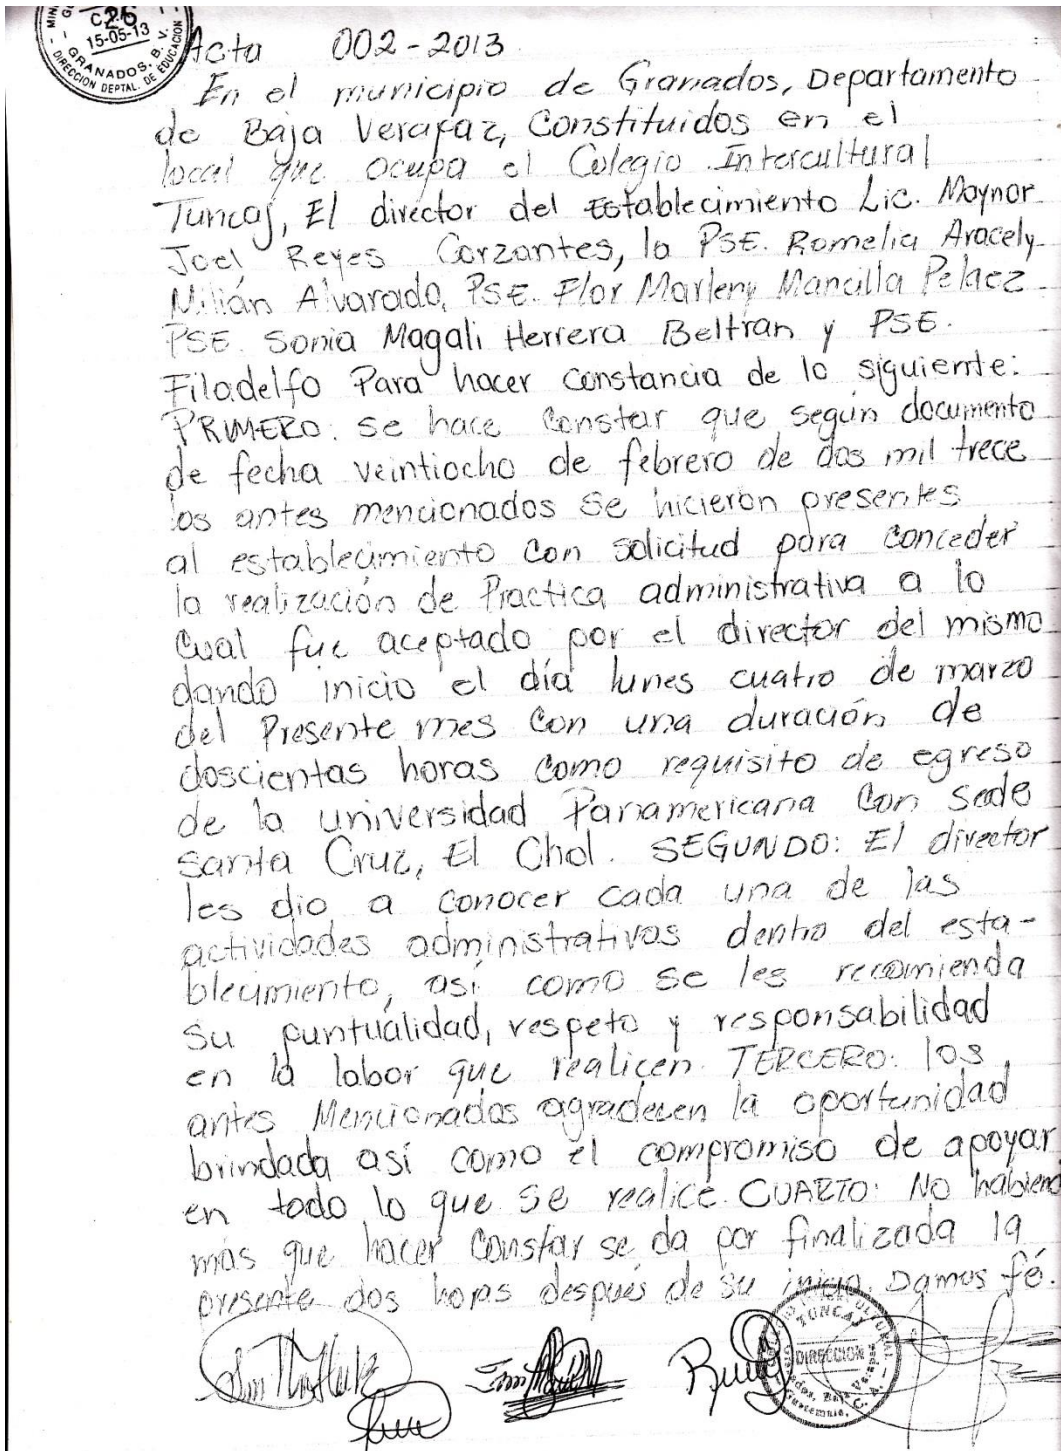 C 26
15-05-13
GRANADOS, B. V.
DIRECCION DEPTAL. DE EDUCACION
Acta 002-2013
En el municipio de Granados, Departamento
de Baja Verapaz, Constituidos en el
local que ocupa el Colegio Intercultural
Tuncaj, El director del Establecimiento Lic. Maynor
Joel Reyes Corzantes, la PSE. Romelia Aracely
Milián Alvarado, PSE. Flor Marleny Mancilla Pelaez
PSE. Sonia Magali Herrera Beltrán y PSE.
Filadelfo Para hacer constancia de lo siguiente:
PRIMERO: se hace Constar que según documento
de fecha veintiocho de febrero de dos mil trece
los antes mencionados se hicieron presentes
al establecimiento con solicitud para conceder
la realización de Practica administrativa a lo
cual fue aceptado por el director del mismo
dando inicio el día lunes cuatro de marzo
del Presente mes con una duración de
doscientas horas como requisito de egreso
de la universidad Panamericana con sede
Santa Cruz, El Chol. SEGUNDO: El director
les dio a conocer cada una de las
actividades administrativas dentro del esta-
blecimiento, así como se les recomienda
su puntualidad, respeto y responsabilidad
en la labor que realicen. TERCERO: los
antes Mencionados agradecen la oportunidad
brindada así como el compromiso de apoyar
en todo lo que se realice. CUARTO: No habiend
más que hacer Constar se da por finalizada la
presente dos horas después de su inicio. Damos fé.
TUNCAJ
DIRECCION
Granados, Baja Verapaz
Guatemala, C. A.